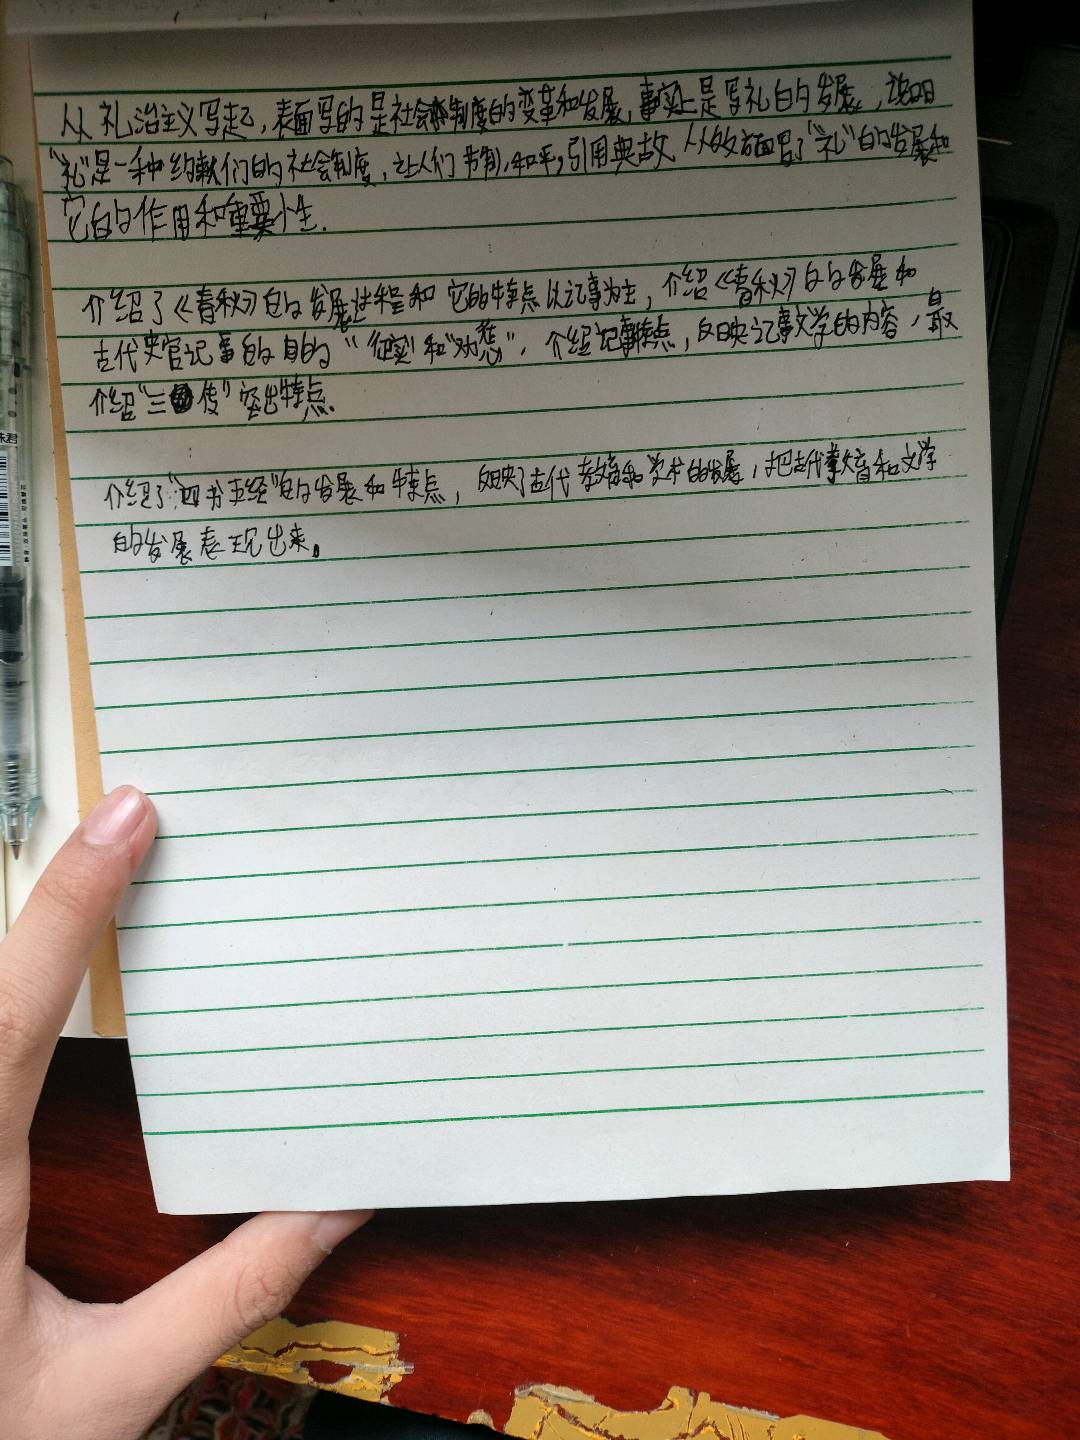 从礼治主义写起，表面写的是社会制度的变革和发展，事实上是写礼的发展，说明
"礼"是一种约束人们的社会制度，让人们节制，和平，引用典故从多方面写了"礼"的发展和
它的作用和重要性.
介绍了《春秋》的发展进程和它的特点以记事为主，介绍《春秋》的发展和
古代史官记事的目的"征实"和"劝惩"，介绍记事特点，反映记事文学的内容，最
介绍"三传"突出特点.
介绍了"四书五经"的发展和特点，反映了古代教育和学术的发展，把古代教育和文学
的发展表现出来。